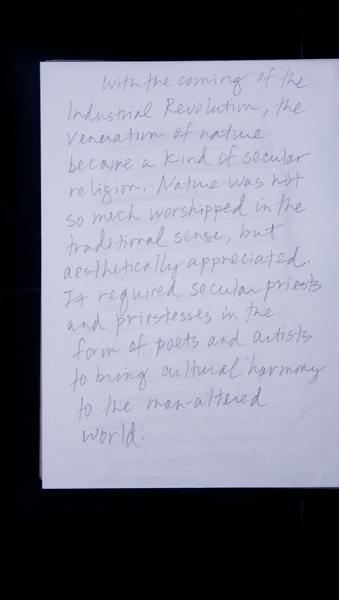 With the coming of the
Industrial Revolution, the
Veneration of nature
became a kind of secular
religion. Nature was not
so much worshipped in the
traditional sense, but
aesthetically appreciated.
It required secular priests
and priestesses in the
form of poets and artists
to bring cultural harmony
to the man-altered
world.